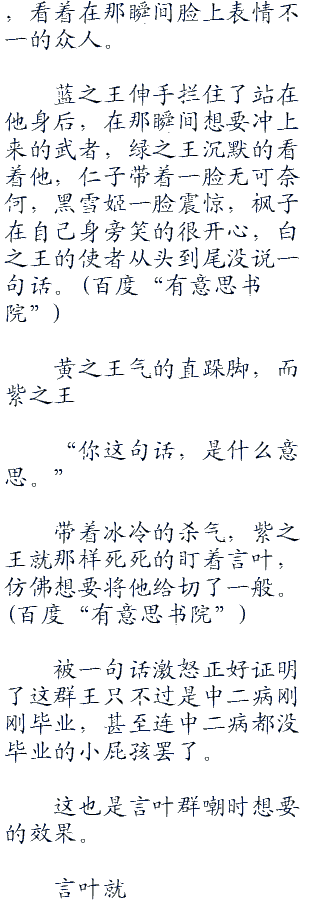 ，看着在那瞬间脸上表情不
一的众人。
蓝之王伸手拦住了站在
他身后，在那瞬间想要冲上
来的武者，绿之王沉默的看
着他，仁子带着一脸无可奈
何，黑雪姬一脸震惊，枫子
在自己身旁笑的很开心，白
之王的使者从头到尾没说一
句话。(百度“有意思书
院”)
黄之王气的直跺脚，而
紫之王
“你这句话，是什么意
思。”
带着冰冷的杀气，紫之
王就那样死死的盯着言叶，
仿佛想要将他给切了一般。
(百度“有意思书院”)
被一句话激怒正好证明
了这群王只不过是中二病刚
刚毕业，甚至连中二病都没
毕业的小屁孩罢了。
这也是言叶群嘲时想要
的效果。
言叶就